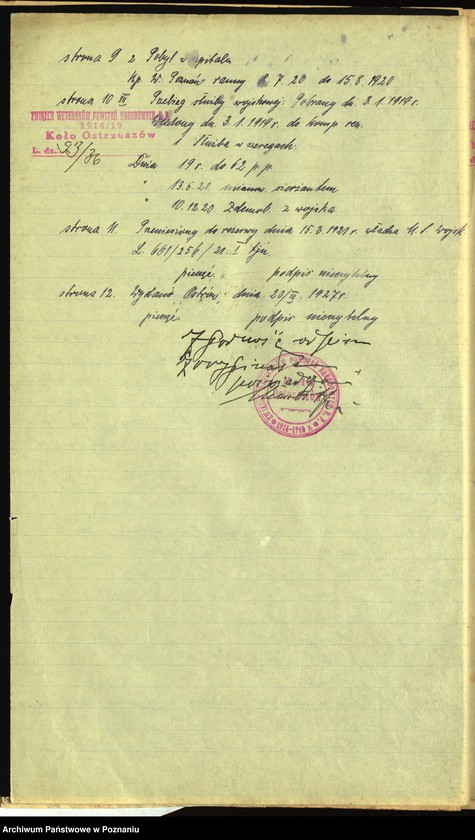 strona 9 z Pobyt w szpitalu
Kp. W. Poznań ranny 2.7.20 do 15.8.1920
strona 10 IV Przebieg służby wojskowej. Pobrany dn. 3.1.1919 r.
Wcielony dn. 3.1.1919 r. do komp. rez.
Służba w szeregach:
ZWIĄZEK WETERANÓW POWSTAŃ NARODOWYCH R.P.
1914/19
Koło Ostrzeszów
L. dz. 23/36
Dnia 19 r. do 62 p.p.
" 13.5.20. mianow. sierżantem
" 10.12.20. Zdemob. z wojska
strona 11. Przeniesiony do rezerwy dnia 15.3.1921 r. władza M. S. Wojsk.
L. 661/256/21. I
pieczę. podpis nieczytelny
strona 12. Wydano, Ostrów, dnia, 20/IX 1927 r.
pieczę. podpis nieczytelny
Zgodność odpisu
z oryginałem
poświadcza
Archiwum Państwowe w Poznaniu